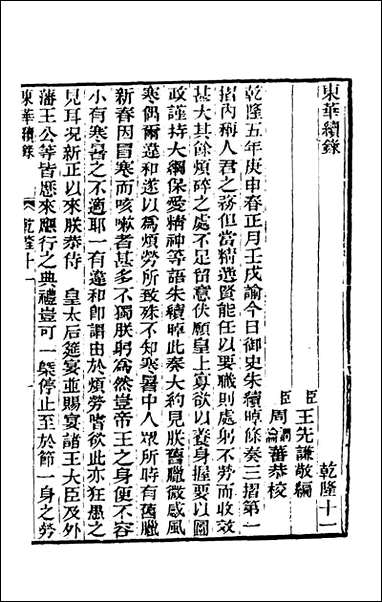 東華續錄
乾隆十一
臣王先謙敬編
臣周潤蕃周瀹蕃恭校
乾隆五年庚申春正月壬戌諭今日御史朱續晫條奏三摺第一
摺內稱人君之務但當精選賢能任以要職則處躬不勞而收效
甚大其餘煩碎之處不足留意伏願皇上寡欲以養身握要以圖
政謹持大綱保愛精神等語朱續晫此奏大約見朕舊臘微感風
寒偶爾違和遂以為煩勞所致殊不知寒暑中人眾所時有舊臘
新春因冒寒而咳嗽者甚多不獨朕躬為然豈帝王之身便不容
小有寒暑之不適耶一有違和即謂由於煩勞皆欲此亦狂愚之
見耳況新正以來朕奉侍 皇太后筵宴並賜宴諸王大臣及外
藩王公等皆應來應行之典禮豈可一槩停止至於節一身之勞
東華續錄 乾隆十一 一